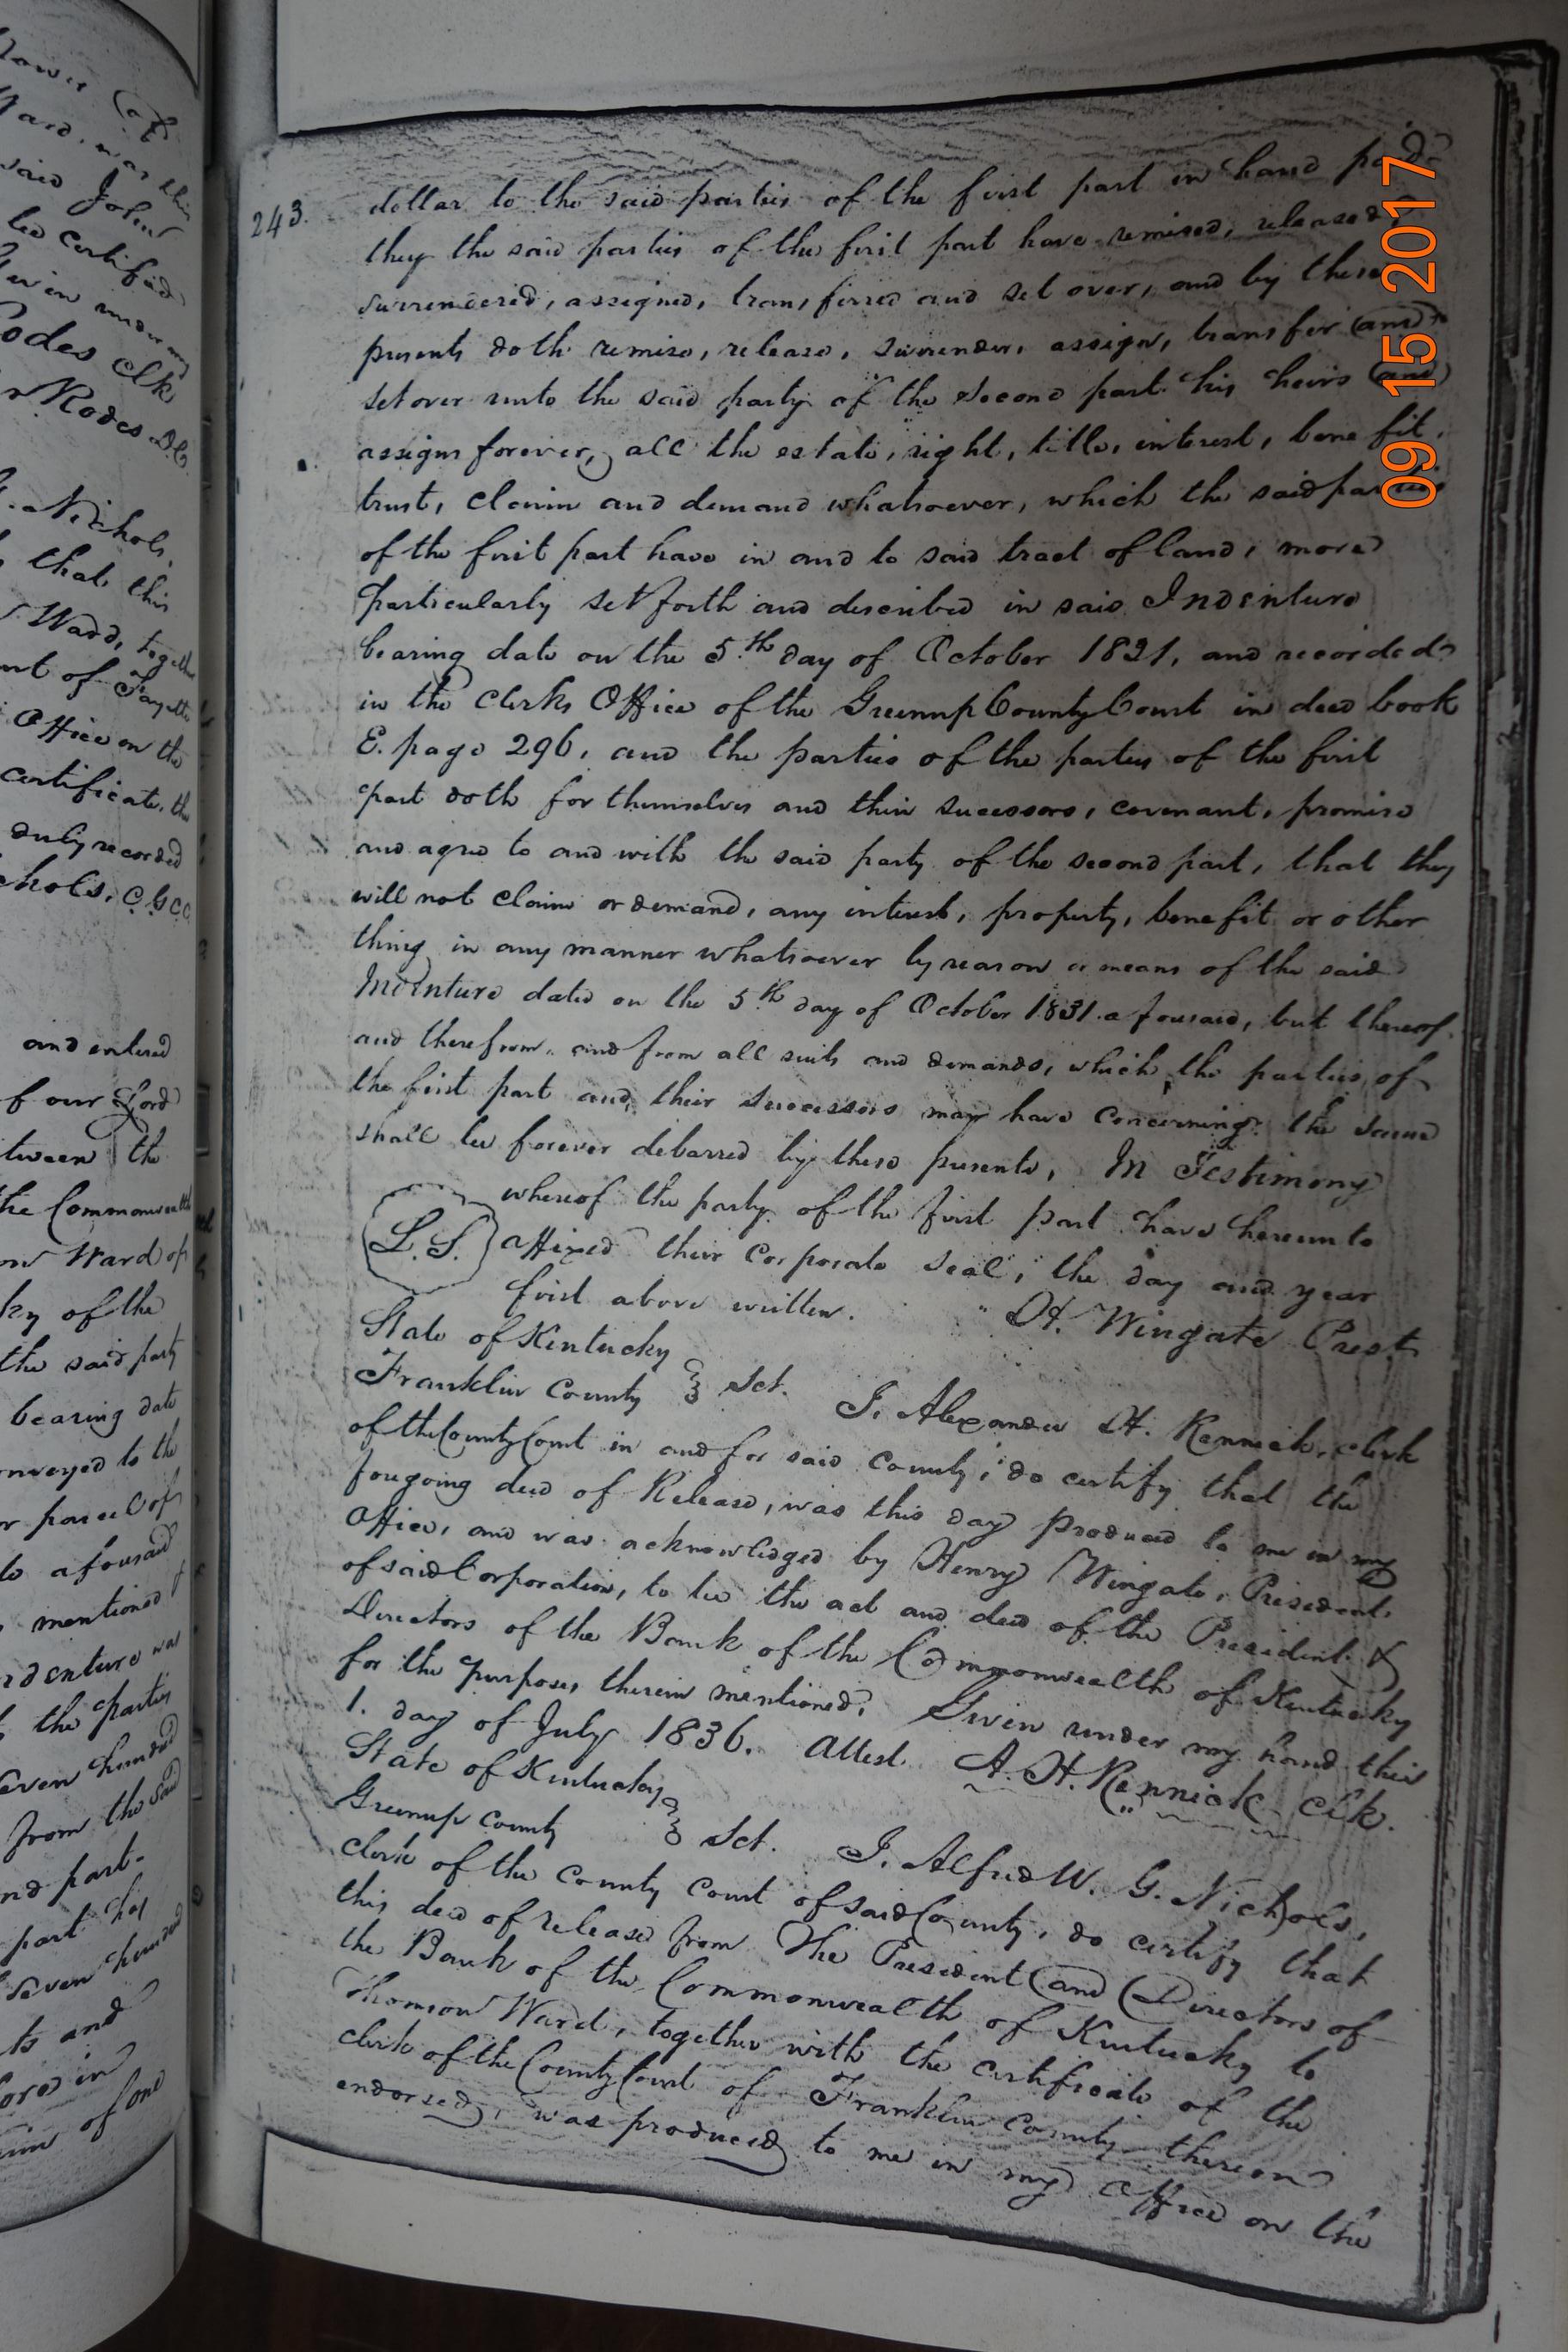 243.
dollar to the said parties of the first part in hand paid
they the said parties of the first part have remised, released,
surrendered, assigned, transferred and set over, and by these
presents doth remise, release, surrender, assign, transfer and
set over unto the said party of the second part his heirs and
assigns forever, all the estate, right, title, interest, benefit,
trust, claim and demand whatsoever, which the said parties
of the first part have in and to said tract of land, more
particularly set forth and described in said Indenture
bearing date on the 5th day of October 1821, and recorded
in the Clerks Office of the Greenup County Court in deed book
E. page 296, and the parties of the parties of the first
part doth for themselves and their sucessors, covenant, promise
and agree to and with the said party of the second part, that they
will not claim or demand, any interest, property, benefit or other
thing in any manner whatsoever by reason or means of the said
Indenture dated on the 5th day of October 1831 aforesaid, but thereof
and therefrom, and from all suits and demands, which the parties of
the first part and their successors may have concerning the same
shall be forever debarred by these presents, In Testimony
whereof the party of the first part have hereunto
L. S. affixed their corporate seal, the day and year
first above written. H. Wingate Prest
State of Kentucky
Franklin County Sct. I, Alexander H. Rennick, clerk
of the County Court in and for said County, do certify that the
foregoing deed of Release, was this day produced to me in my
Office, and was acknowledged by Henry Wingate, President
of said Corporation, to be the act and deed of the President &
Directors of the Bank of the Commonwealth of Kentucky
for the purposes therein mentioned, Given under my hand this
1. day of July 1836. Attest A. H. Rennick Clk.
State of Kentucky
Greenup County Sct. I, Alfred W. G. Nichols,
clerk of the County Court of said County, do certify that
this deed of release from The President and Directors of
the Bank of the Commonwealth of Kentucky to
Thomson Ward, together with the certificate of the
clerk of the County Court of Franklin County thereon
endorsed, was produced to me in my office on the
said John
be certified
Given under my
Rodes Clk
Rodes D.C.
Nichols,
that this
Ward, together
Office on the
certificate, the
duly recorded
C.G.C.C.
and entered
of our Lord
the
the Commonwealth
Ward of
of the
the said party
bearing date
conveyed to the
or parcel of
aforesaid
mentioned
Indenture was
the parties
Seven hundred
from the said
part
part has
Seven hundred
and
in
of one
09 15 2017